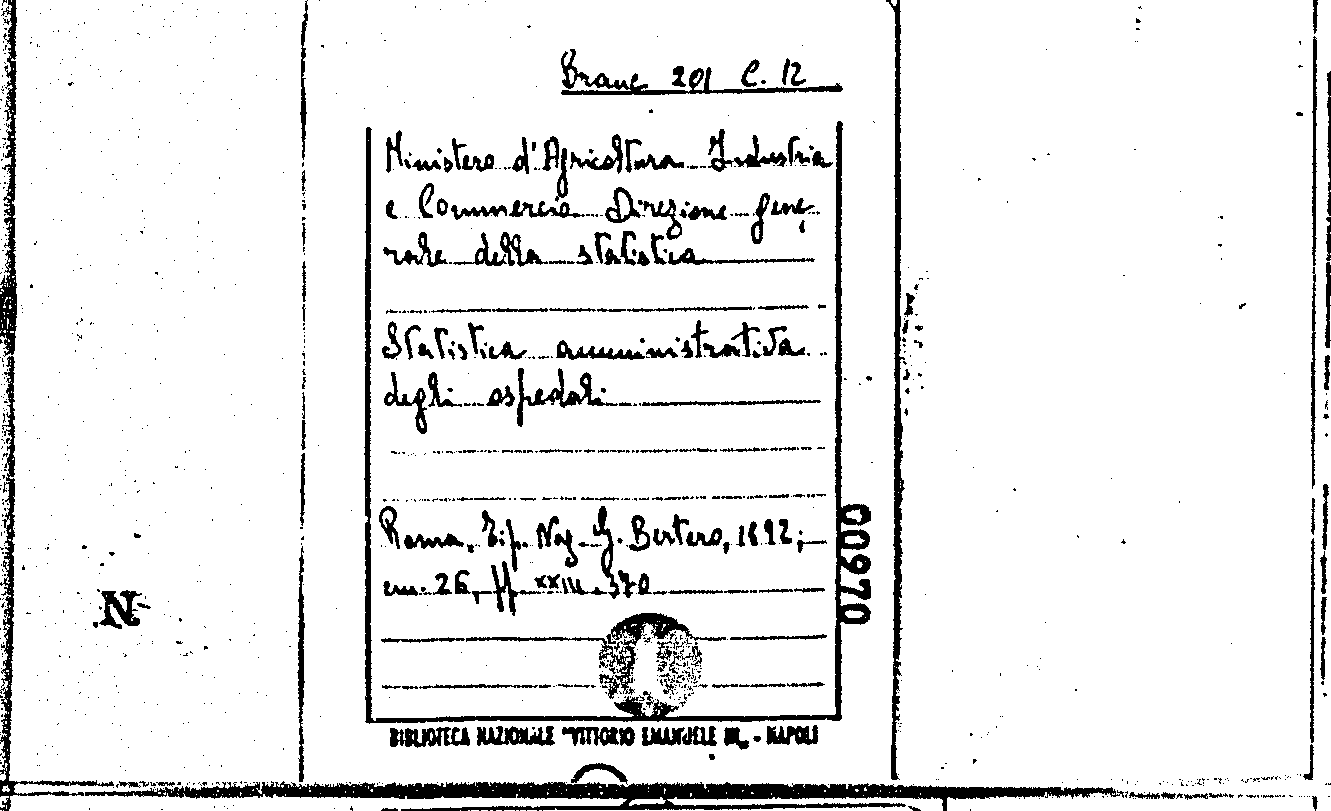 Branc 201 C. 12
Ministero d'Agricoltura Industria
e Commercio Direzione gene
rale della statistica
Statistica amministrativa
degli ospedali
Roma, Tip. Naz. G. Bertero, 1892;
cm. 26, pp. XXIII. 370
00970
N
BIBLIOTECA NAZIONALE "VITTORIO EMANUELE III„ - NAPOLI